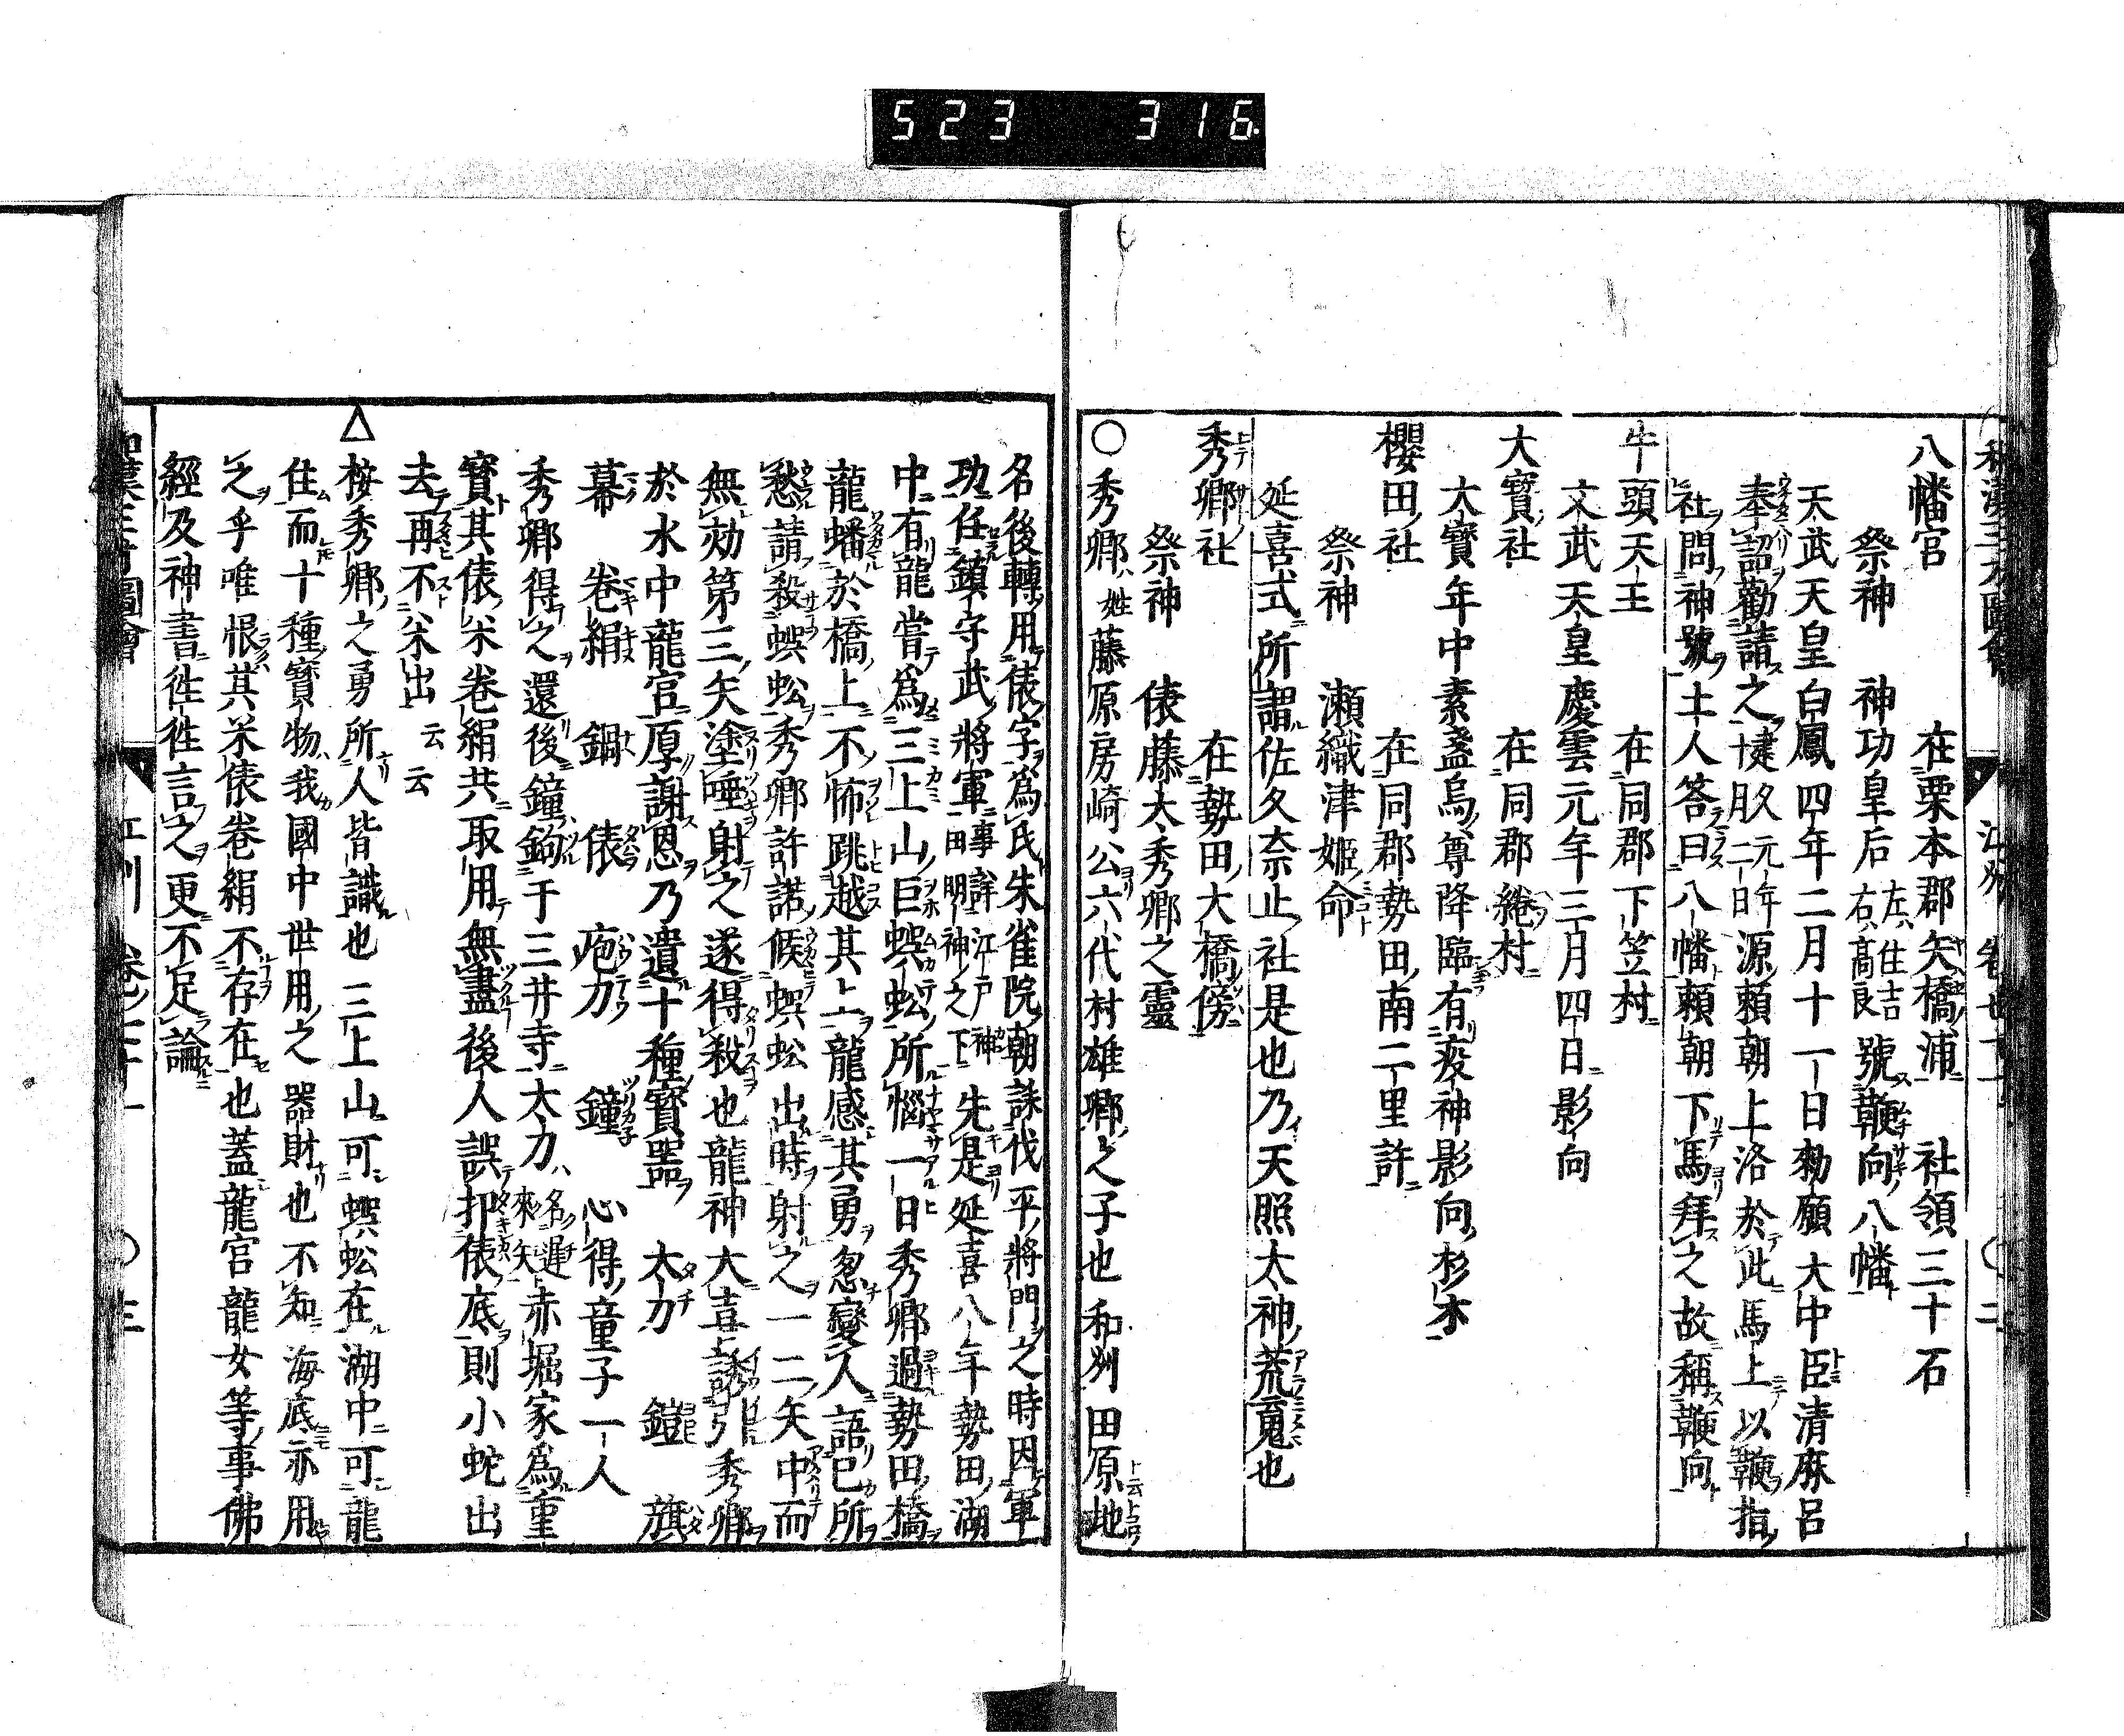 523 316
八幡宮 在栗本郡矢橋浦 社領三十石
祭神 神功皇后 左住吉 右高良 號鞭向八幡
天武天皇白鳳四年二月十一日勅願大中臣清麻呂
奉詔勸請之 建久元年二日源賴朝上洛於此馬上以鞭指
社問神號土人答曰八幡賴朝下馬拜之故稱鞭向
牛頭天王 在同郡下笠村
文武天皇慶雲元年三月四日影向
大寶社 在同郡綣村
大寶年中素盞烏尊降臨有疫神影向杉木
櫻田社 在同郡勢田南二里許
祭神 瀬織津姬命
延喜式所謂佐久奈止社是也乃天照太神荒䰟也
秀郷社 在勢田大橋傍
祭神 俵藤太秀郷之靈
○秀郷姓藤原房崎公六代村雄郷之子也和州田原地
名後轉用俵字爲氏朱雀院朝誅伐平將門之時因軍
功任鎮守武將軍 事詳江戸神田明神之下 先是延喜八年勢田湖
中有龍嘗爲三上山巨蜈蚣所惱一日秀郷過勢田橋
龍蟠於橋上不怖跳越其上龍感其勇忽變人語已所
愁請殺蜈蚣秀郷許諾候蜈蚣出時射之一二矢中而
無効第三矢塗唾射之遂得殺也龍神大喜誘引秀郷
於水中龍宮厚謝恩乃遺十種寳噐 太刀 鎧 旗
幕 卷絹 鍋 俵 庖刀 鐘 心得童子一人
秀郷得之還後鐘鉤于三井寺太刀 名遅來矢 赤堀家爲重
寳其俵米卷絹共取用無盡後人誤扣俵底則小蛇出
去再不米出云云
△按秀郷之勇所人皆識也三上山可蜈蚣在湖中可龍
住而十種寳物我國中世用之器財也不知海底亦用
之乎唯恨其米俵卷絹不存在也蓋龍宮龍女等事佛
經及神書徃徃言之更不足論